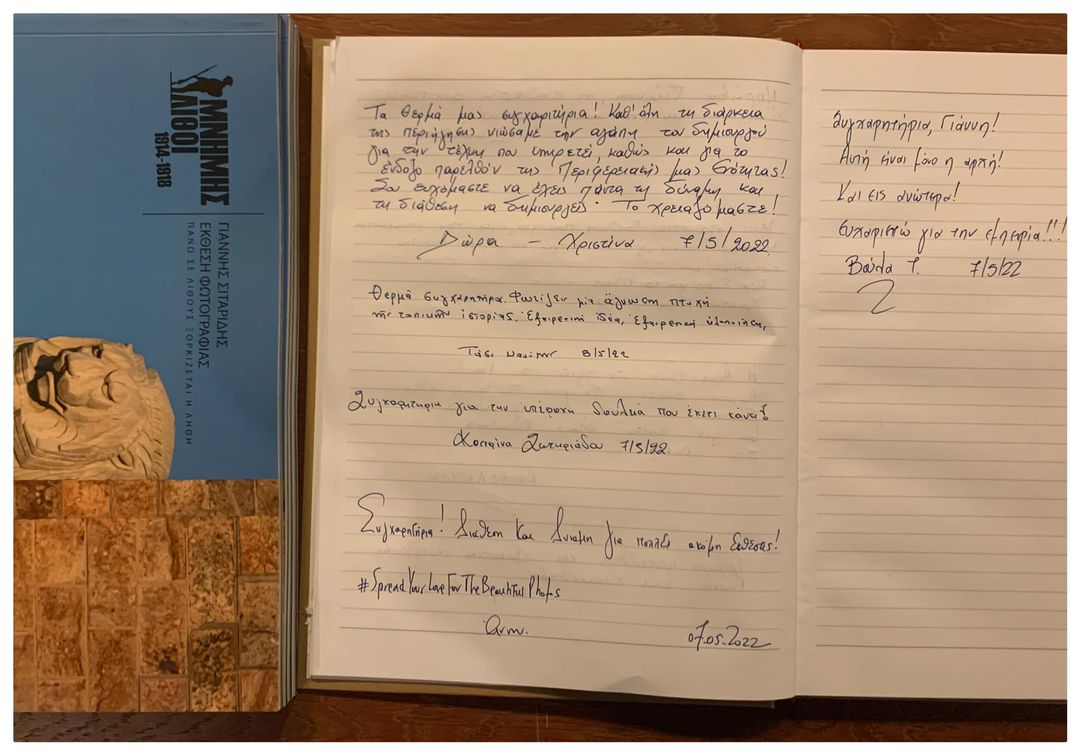 ΜΝΗΜΗΣ
ΛΙΘΟΙ
1914-1918
ΓΙΑΝΝΗΣ ΣΙΤΑΡΙΔΗΣ
ΕΚΘΕΣΗ ΦΩΤΟΓΡΑΦΙΑΣ
ΠΑΝΩ ΣΕ ΛΙΘΟΥΣ ΞΟΡΚΙΖΕΤΑΙ Η ΛΗΘΗ
Τα θερμά μας συγχαρητήρια! Καθ' όλη τη διάρκεια
της περιήγησης νιώσαμε την αγάπη του δημιουργού
για την τέχνη που υπηρετεί, καθώς και για το
ένδοξο παρελθόν της Περιφερειακής μας Ενότητας!
Σου ευχόμαστε να έχεις πάντα τη δύναμη και
τη διάθεση να δημιουργείς· Το χρειαζόμαστε!
Δώρα - Χριστίνα 7/5/2022
Θερμά συγχαρητήρια. Φωτίζεις μια άγνωστη πτυχή
της τοπικής ιστορίας. Εξαιρετική ιδέα, εξαιρετική υλοποίηση,
8/5/22
Συγχαρητηρια για την υπέροχη δουλειά που έχετε κάνει!
Σωτηριάδου 7/5/22.
Συγχαρητήρια! Διάθεση Και Δύναμη για πολλές ακόμη Εκθέσεις!
#SpreadYourLoveForTheBeautifulPhotos
07.05.2022
Συγχαρητήρια, Γιάννη!
Αυτή είναι μόνο η αρχή!
Και εις ανώτερα!
Ευχαριστώ για την εμπειρία!!!
Βούλα Τ. 7/5/22